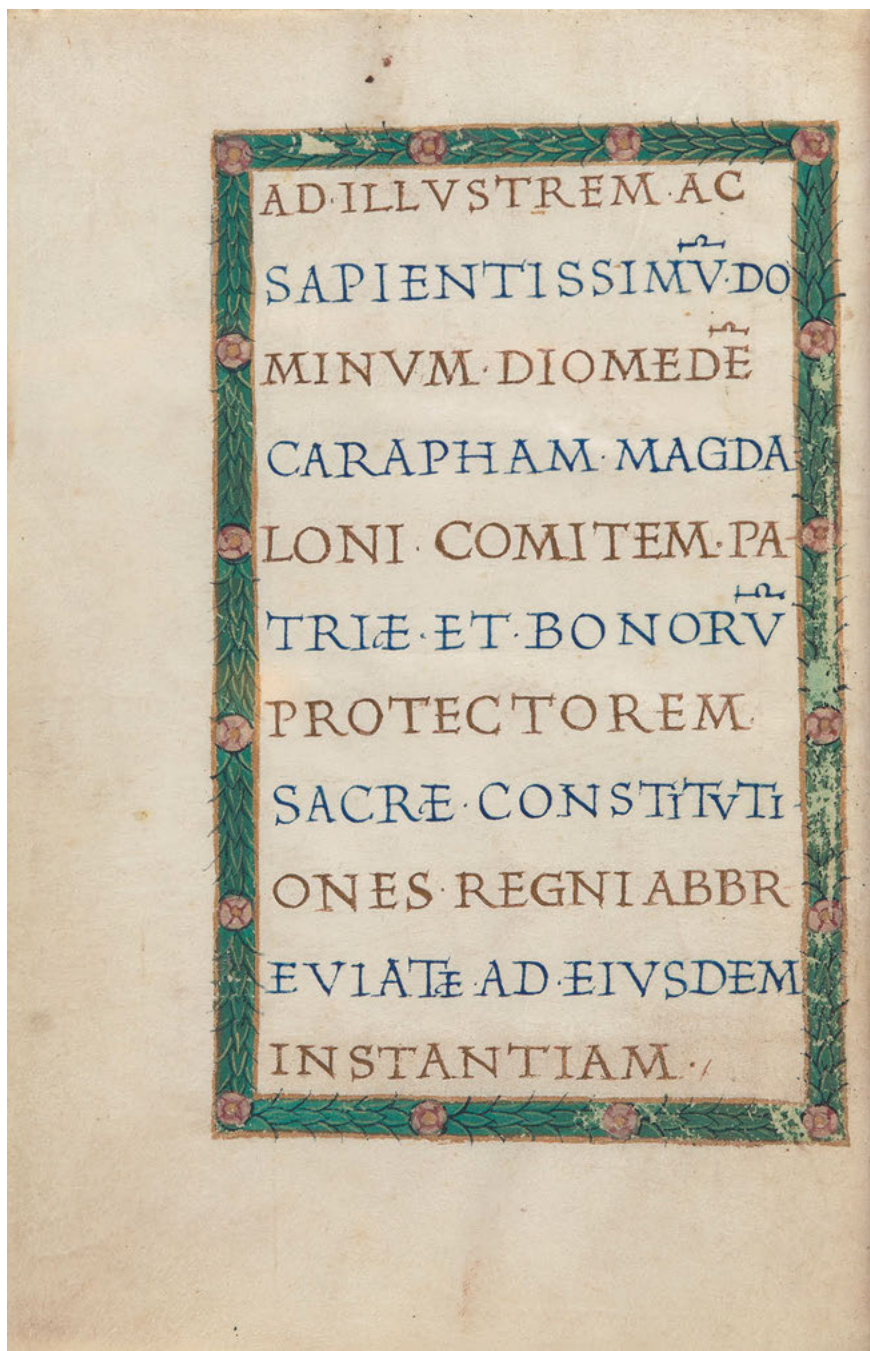 AD·ILLVSTREM·AC
SAPIENTISSIMV̄·DO
MINVM·DIOMEDĒ
CARAPHAM·MAGDA
LONI·COMITEM·PA
TRIÆ·ET·BONORV̄
PROTECTOREM·
SACRÆ·CONSTiTVTi
ONES·REGNI ABBR
EVIATÆ·AD·EIVSDEM
INSTANTIAM·/